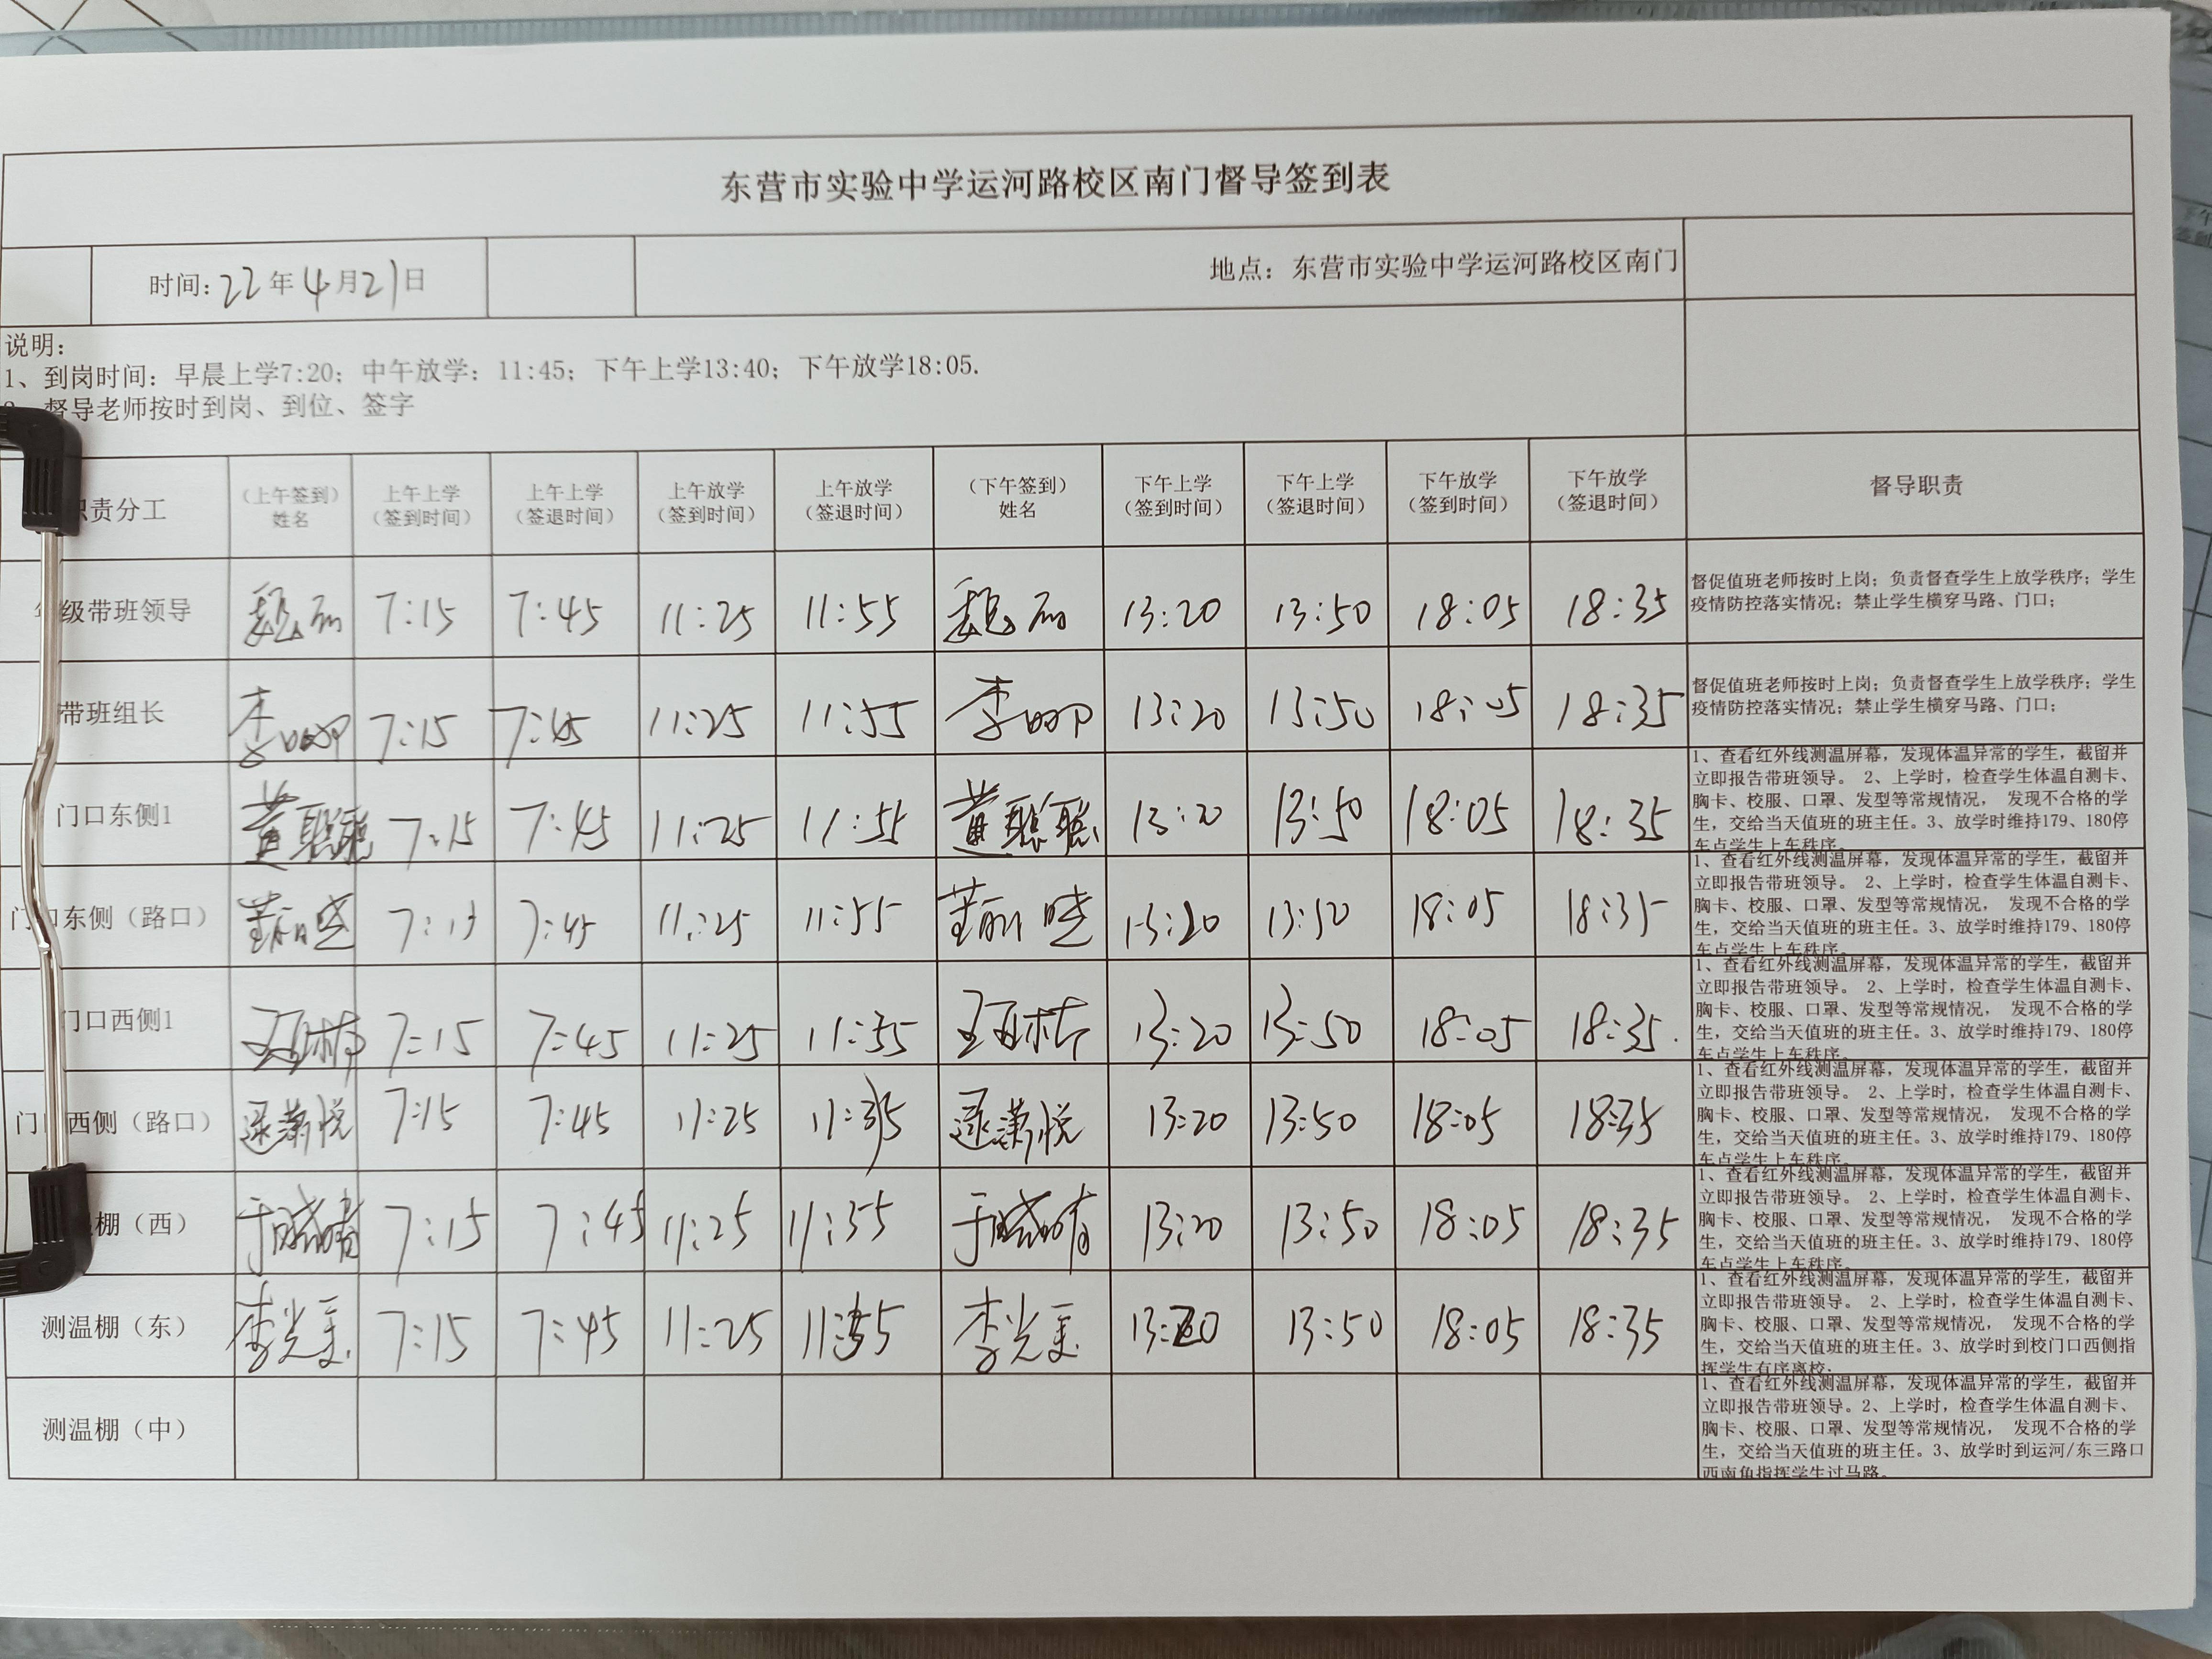 东营市实验中学运河路校区南门督导签到表
时间:22年4月21日
地点：东营市实验中学运河路校区南门
说明：
1、到岗时间：早晨上学7:20；中午放学：11:45；下午上学13:40；下午放学18:05.
督导老师按时到岗、到位、签字
职责分工 （上午签到）姓名 上午上学（签到时间） 上午上学（签退时间） 上午放学（签到时间） 上午放学（签退时间） （下午签到）姓名 下午上学（签到时间） 下午上学（签退时间） 下午放学（签到时间） 下午放学（签退时间） 督导职责
级带班领导 魏丽 7:15 7:45 11:25 11:55 魏丽 13:20 13:50 18:05 18:35
督促值班老师按时上岗；负责督查学生上放学秩序；学生
疫情防控落实情况；禁止学生横穿马路、门口；
带班组长 李娜 7:15 7:45 11:25 11:55 李娜 13:20 13:50 18:05 18:35
督促值班老师按时上岗；负责督查学生上放学秩序；学生
疫情防控落实情况；禁止学生横穿马路、门口；
门口东侧1 黄聪聪 7:15 7:45 11:25 11:55 黄聪聪 13:20 13:50 18:05 18:35
1、查看红外线测温屏幕，发现体温异常的学生，截留并
立即报告带班领导。 2、上学时，检查学生体温自测卡、
胸卡、校服、口罩、发型等常规情况， 发现不合格的学
生，交给当天值班的班主任。3、放学时维持179、180停
车点学生上车秩序。
门口东侧（路口） 7:15 7:45 11:25 11:55 13:20 13:50 18:05 18:35
1、查看红外线测温屏幕，发现体温异常的学生，截留并
立即报告带班领导。 2、上学时，检查学生体温自测卡、
胸卡、校服、口罩、发型等常规情况， 发现不合格的学
生，交给当天值班的班主任。3、放学时维持179、180停
车点学生上车秩序。
门口西侧1 7:15 7:45 11:25 11:55 13:20 13:50 18:05 18:35.
1、查看红外线测温屏幕，发现体温异常的学生，截留并
立即报告带班领导。 2、上学时，检查学生体温自测卡、
胸卡、校服、口罩、发型等常规情况， 发现不合格的学
生，交给当天值班的班主任。3、放学时维持179、180停
车点学生上车秩序。
门口西侧（路口） 逯潇悦 7:15 7:45 11:25 11:35 逯潇悦 13:20 13:50 18:05 18:35
1、查看红外线测温屏幕，发现体温异常的学生，截留并
立即报告带班领导。 2、上学时，检查学生体温自测卡、
胸卡、校服、口罩、发型等常规情况， 发现不合格的学
生，交给当天值班的班主任。3、放学时维持179、180停
车点学生上车秩序。
棚（西） 于晓晴 7:15 7:45 11:25 11:55 于晓晴 13:20 13:50 18:05 18:35
1、查看红外线测温屏幕，发现体温异常的学生，截留并
立即报告带班领导。 2、上学时，检查学生体温自测卡、
胸卡、校服、口罩、发型等常规情况， 发现不合格的学
生，交给当天值班的班主任。3、放学时维持179、180停
车点学生上车秩序。
测温棚（东） 李光美 7:15 7:45 11:25 11:55 李光美 13:20 13:50 18:05 18:35
1、查看红外线测温屏幕，发现体温异常的学生，截留并
立即报告带班领导。 2、上学时，检查学生体温自测卡、
胸卡、校服、口罩、发型等常规情况， 发现不合格的学
生，交给当天值班的班主任。3、放学时到校门口西侧指
挥学生有序离校；
测温棚（中）
1、查看红外线测温屏幕，发现体温异常的学生，截留并
立即报告带班领导。2、上学时，检查学生体温自测卡、
胸卡、校服、口罩、发型等常规情况， 发现不合格的学
生，交给当天值班的班主任。3、放学时到运河/东三路口
西南角指挥学生过马路。